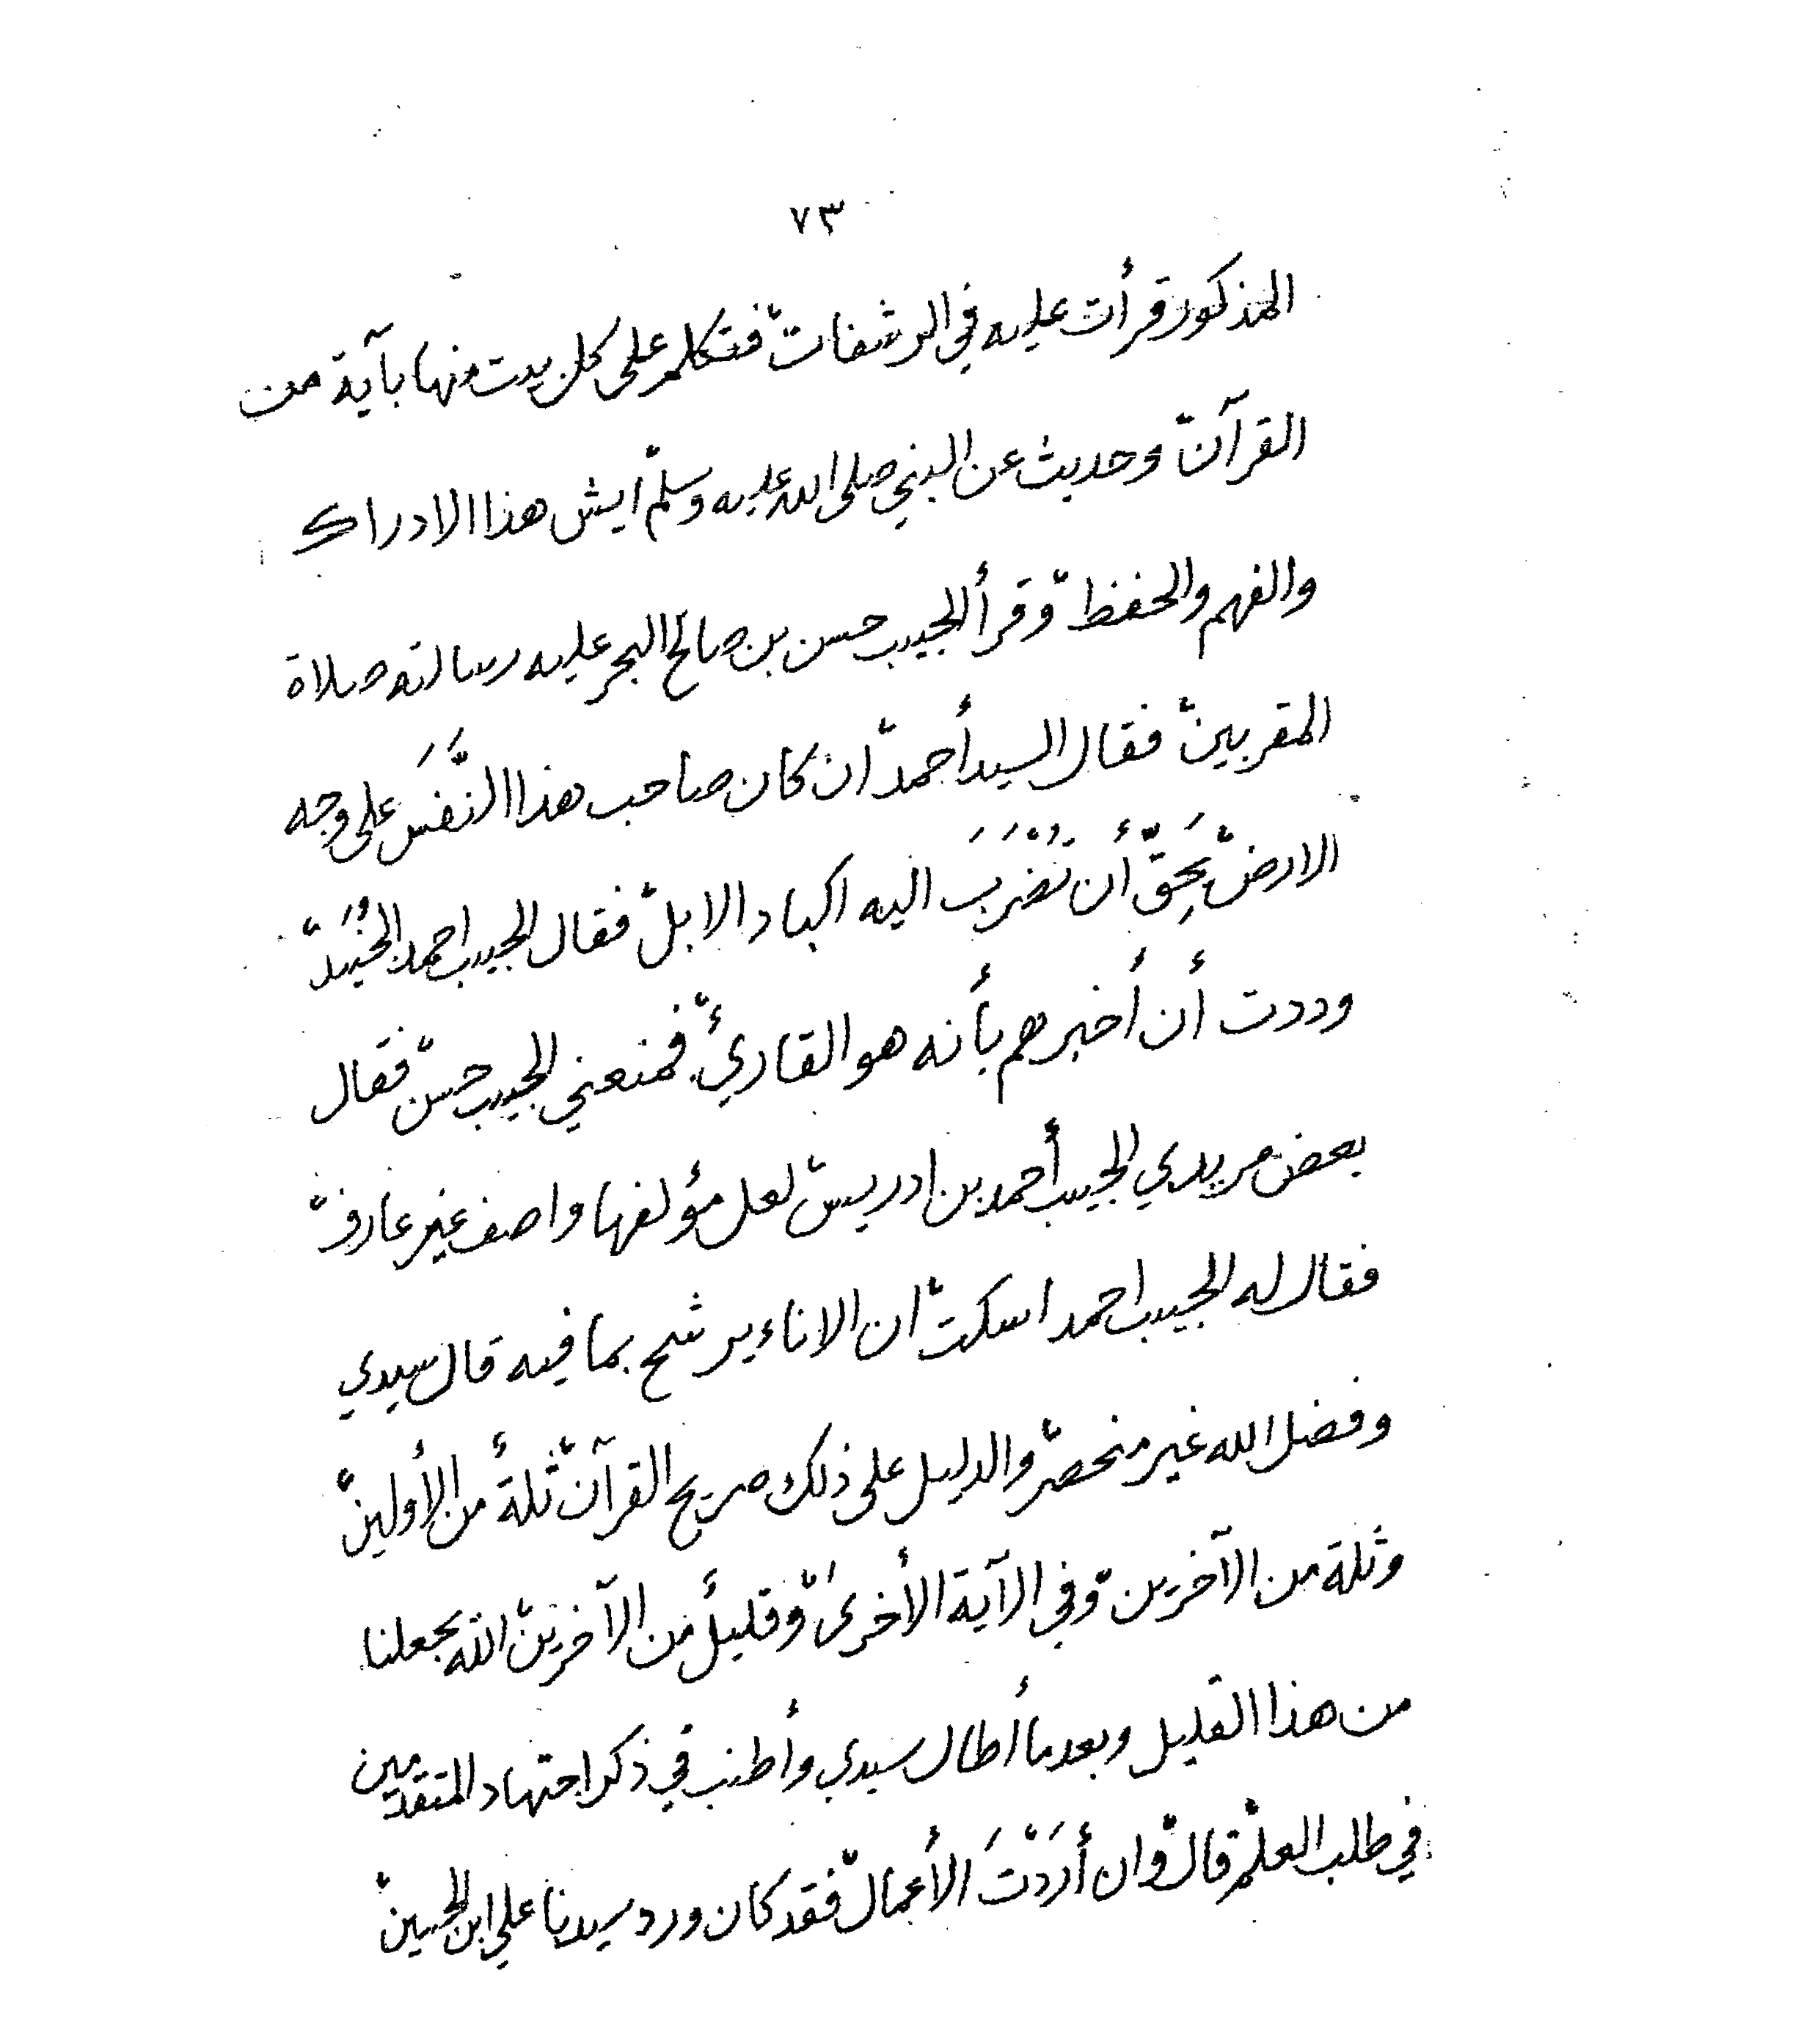 ٧٣
المذكور قرأت عليه في الرشفات، فتكلم على كل بيت منها بآية من
القرآن، وحديث عن النبي صلى الله عليه وسلم، ايش هذا الادراك
والفهم والحفظ، وقرأ الحبيب حسن بن صالح البحر عليه رسالته صلاة
المقربين، فقال السيد أحمد، ان كان صاحب هذا النَّفَسَ على وجه
الارض، يَحِقّ أن تُضْرَبَ اليه اكباد الابل، فقال الحبيب احمد الجُنَيد،
وددت أن أخبرهم بأنه هو القاريء، فمنعني الحبيب حسن، فقال
بعض مريدي الحبيب أحمد بن ادريس، لعل مؤلفها واصف غير عارف،
فقال له الحبيب احمد اسكت، ان الاناء يرشح بما فيه قال سيدي
وفضل الله غير منحصر، والدليل على ذلك صريح القرآن، ثلة من الأولين،
وثلة من الآخرين، وفي الآية الأخرى، وقليل من الآخرين، الله يجعلنا
من هذا القليل وبعد ما أطال سيدي وأطنب في ذكر اجتهاد المتقدمين
في طلب العلم، قال، وان أرَدْتَ الأعمال، فقد كان ورد سيدنا علي ابن الحسين،